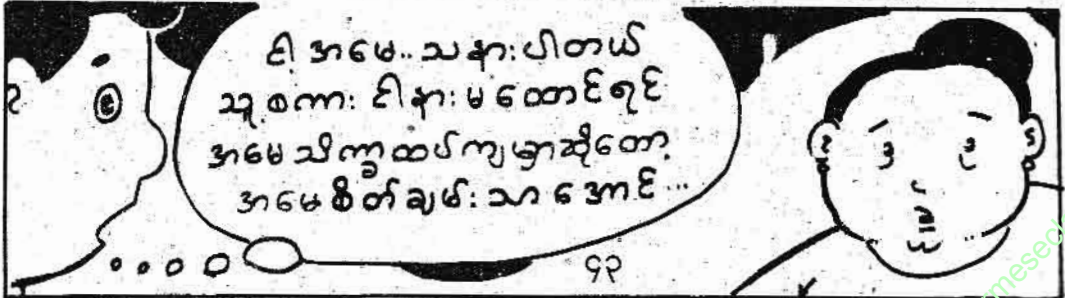 ငါ့ အမေ..သနားပါတယ်
သူ့စကား ငါနားမထောင်ရင်
အမေသိက္ခာထပ်ကျမှာဆိုတော့
အမေစိတ်ချမ်းသာအောင်...
၄၃